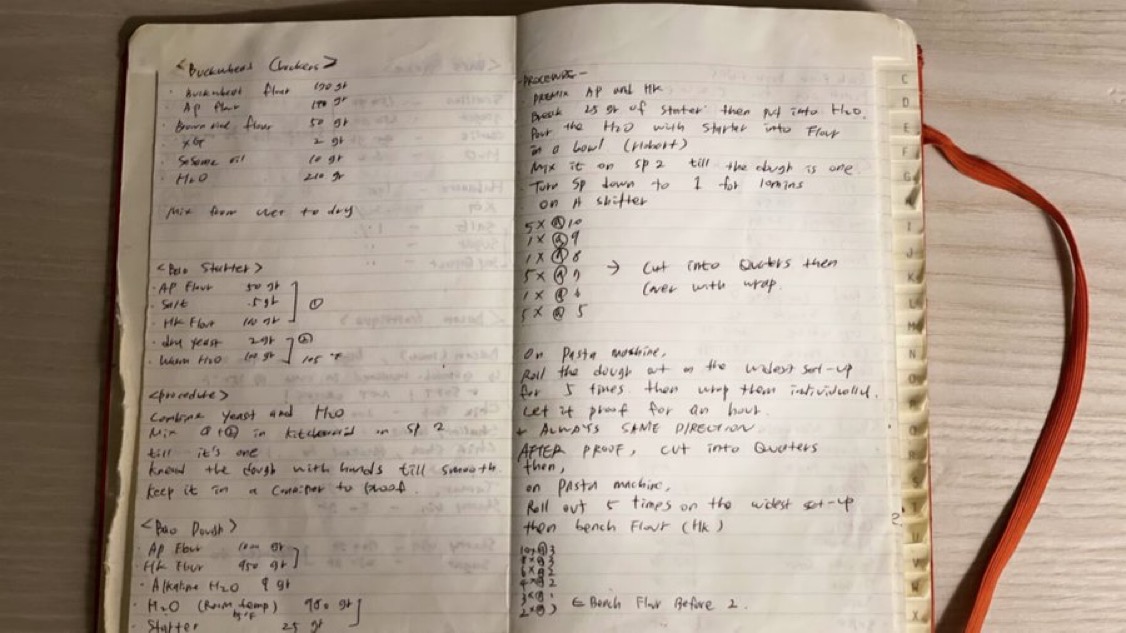 <Buckwheat Crackers>
· Buckwheat flour 150 gr
· AP flour 150 gr
· Brown rice flour 50 gr
· XG 2 gr
· Sesame oil 10 gr
· H2O 210 gr
Mix from wet to dry
<Bao Starter>
· AP Flour 50 gr
· Salt .5 gr ①
· HK Flour 100 gr
· dry yeast 2 gr ②
· Warm H2O 100 gr 105 °F
<procedure>
Combine yeast and H2O
Mix ① + ② in kitchenaid on sp 2
till it's one
knead the dough with hands till smooth.
keep it in a container to proof.
<Bao Dough>
· AP Flour gr
· HK Flour 950 gr
· Alkaline H2O 9 gr
· H2O (Room temp) 950 gr
· Starter 25 gr
-PROCEDURE-
· PREMIX AP and HK
Break 25 gr of starter then put into H2O.
Pour the H2O with starter into Flour
in a bowl (Hobart)
Mix it on sp 2 till the dough is one
· Turn Sp down to 1 for 10mins
on A shifter
5 X @ 10
1 X @ 9
1 X @ 8
5 X @ 7 → Cut into Quaters then
cover with wrap.
1 X @ 6
5 X @ 5
On Pasta machine,
Roll the dough out on the widest set-up
for 5 times then wrap them individually.
Let it proof for an hour.
* ALWAYS SAME DIRECTION
AFTER PROOF, cut into Quaters
then,
on Pasta machine,
Roll out 5 times on the widest set-up
then bench Flour (HK)
10 X @ 3
@ 3
@ 2
4 X @ 2
3 X @
2 X @ ← Bench Flour Before 2.
C
D
E
F
G
I
J
K
L
M
N
O
Q
R
S
T
U
V
W
X